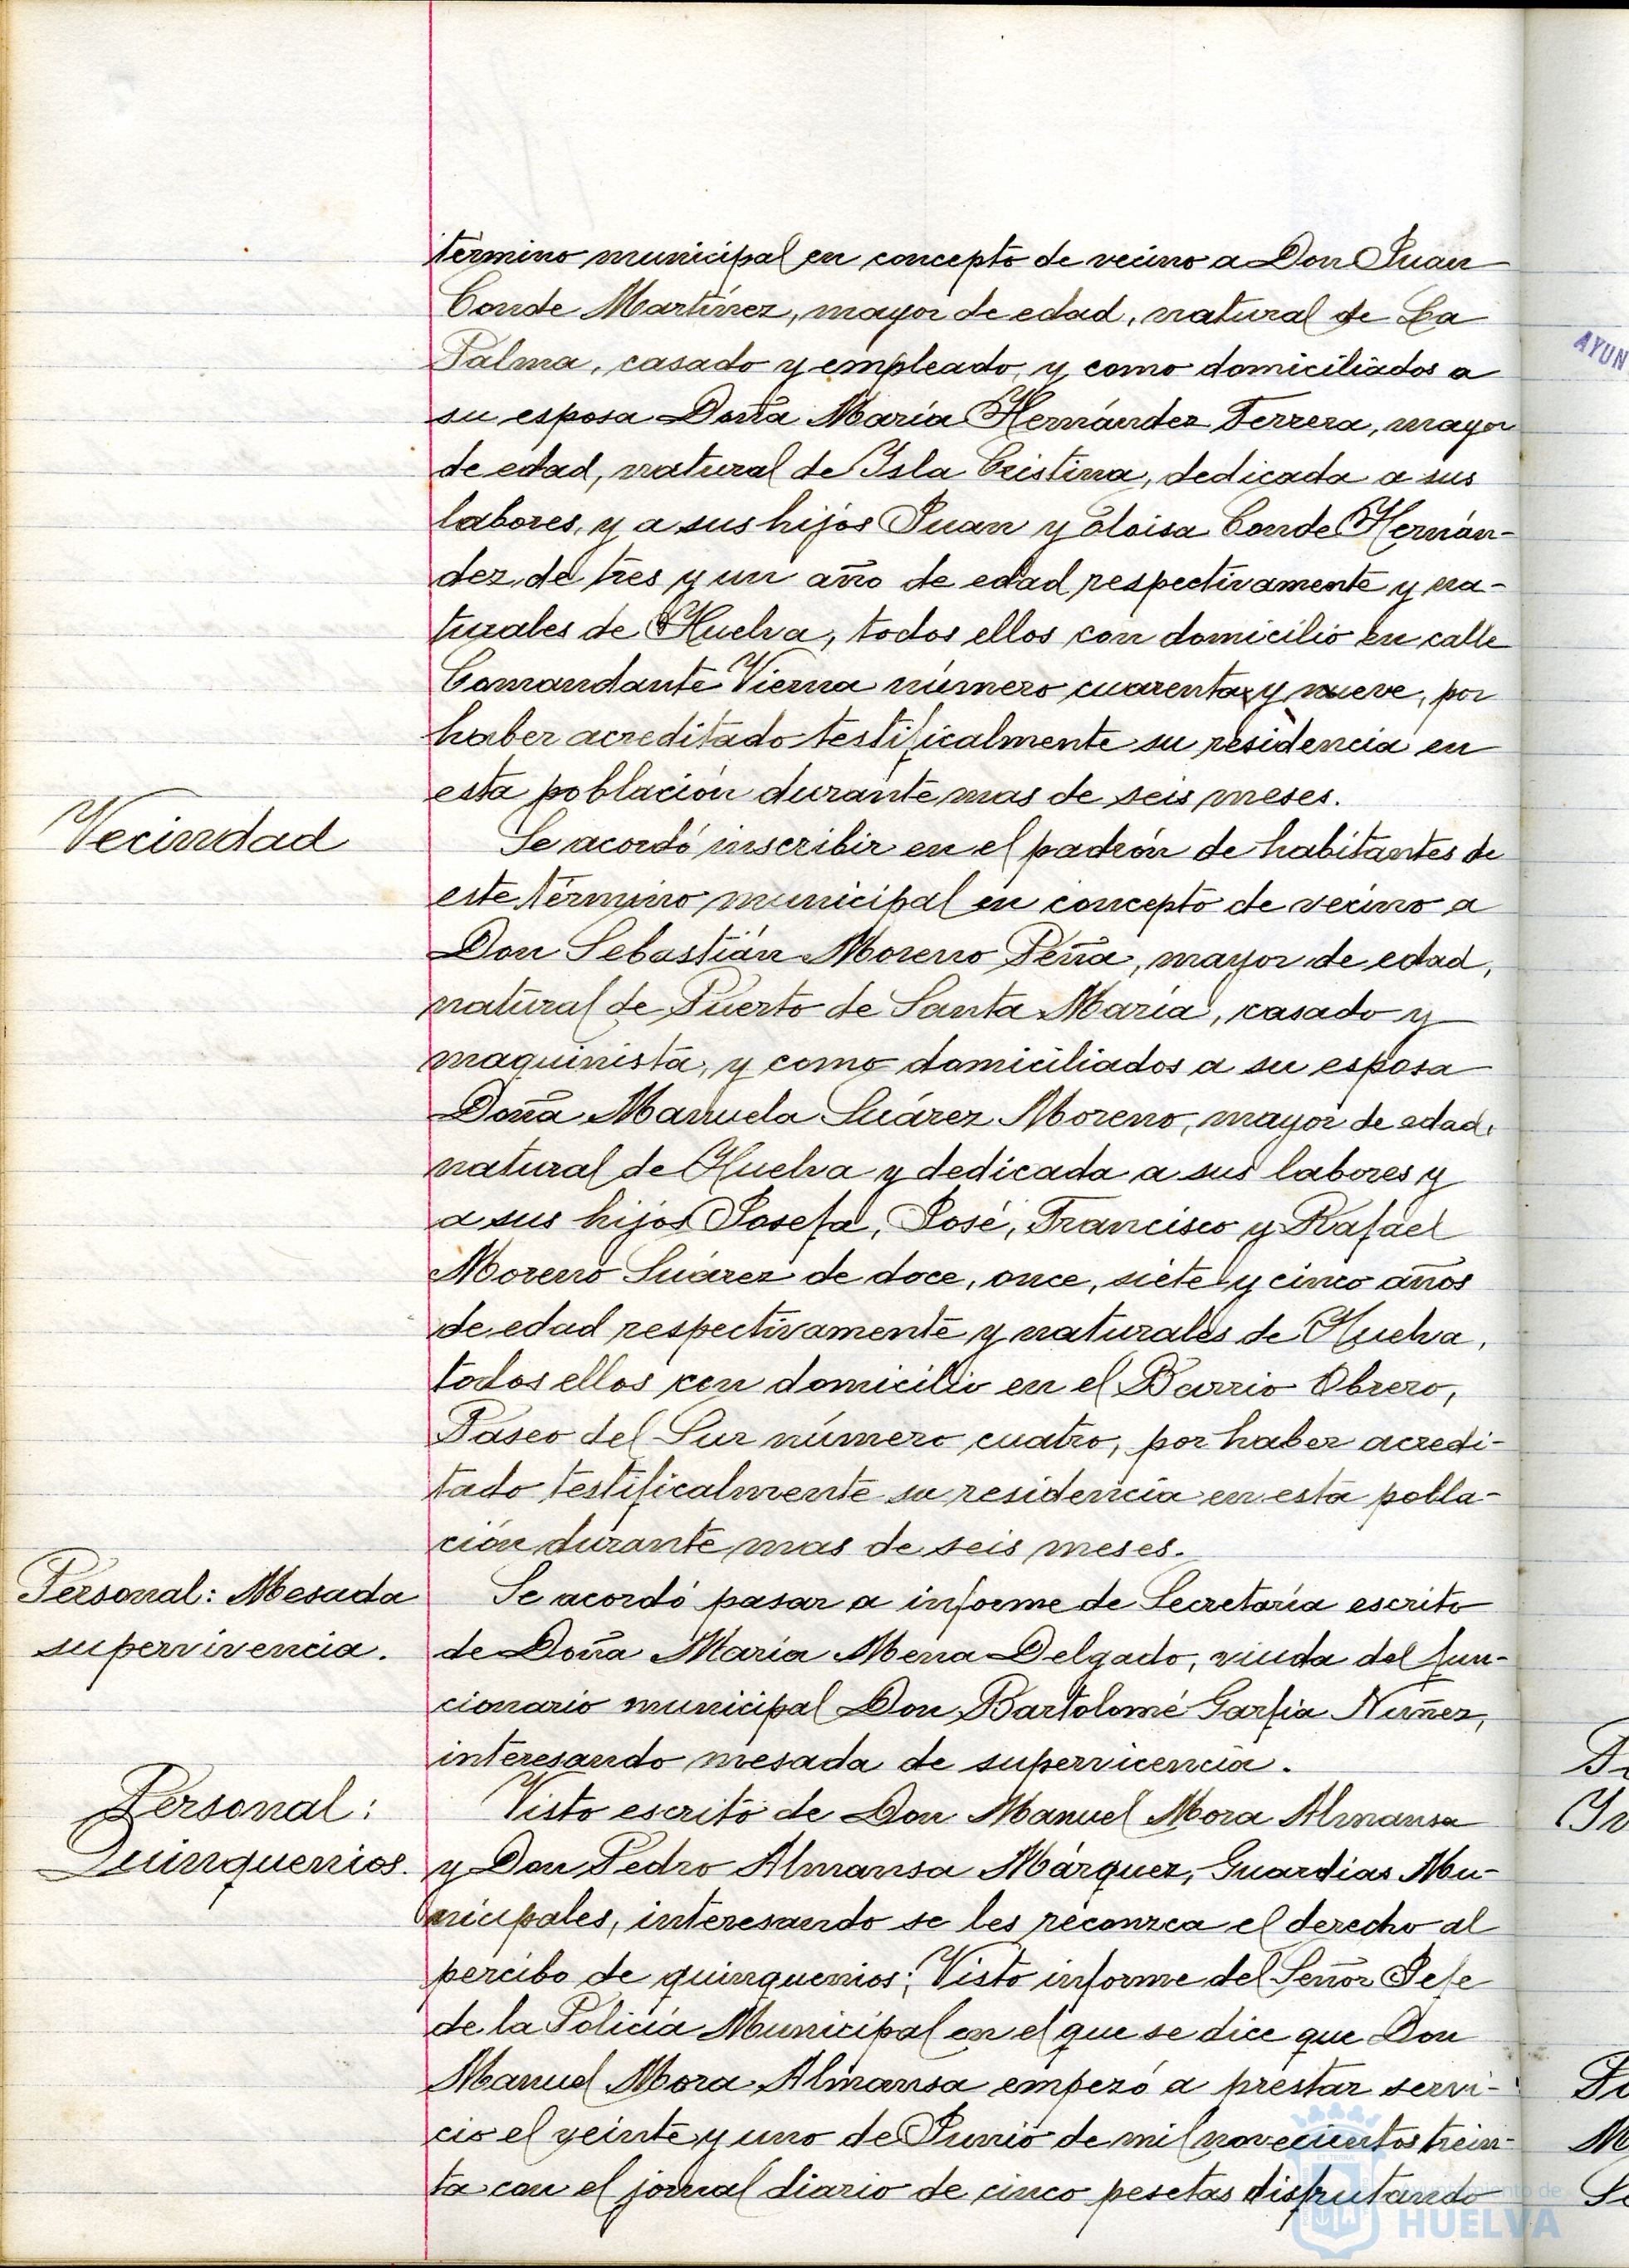 término municipal en concepto de vecino a Don Juan
Conde Martínez, mayor de edad, natural de La
Palma, casado y empleado, y como domiciliados a
su esposa Doña María Hernández Ferrera, mayor
de edad, natural de Isla Cristina, dedicada a sus
labores, y a sus hijos Juan y Eloisa Conde Hernán-
dez, de tres y un año de edad respectivamente y na-
turales de Huelva, todos ellos con domicilio en calle
Comandante Vierna número cuarenta y nueve, por
haber acreditado testificalmente su residencia en
esta población durante mas de seis meses.
Vecindad
Se acordó inscribir en el padrón de habitantes de
este término municipal en concepto de vecino a
Don Sebastián Moreno Peña, mayor de edad,
natural de Puerto de Santa María, casado y
maquinista, y como domiciliados a su esposa
Doña Manuela Suárez Moreno, mayor de edad,
natural de Huelva y dedicada a sus labores y
a sus hijos Josefa, José, Francisco y Rafael
Moreno Suárez de doce, once, siete y cinco años
de edad respectivamente y naturales de Huelva,
todos ellos con domicilio en el Barrio Obrero,
Paseo del Sur número cuatro, por haber acredi-
tado testificalmente su residencia en esta pobla-
ción durante mas de seis meses.
Personal: Mesada
supervivencia.
Se acordó pasar a informe de Secretaría escrito
de Doña María Mena Delgado, viuda del fun-
cionario municipal Don Bartolomé Garfia Nuñez,
interesando mesada de supervicencia.
Personal:
Quinquenios.
Visto escrito de Don Manuel Mora Almansa
y Don Pedro Almansa Márquez, Guardias Mu-
nicipales, interesando se les reconzca el derecho al
percibo de quinquenios; Visto informe del Señor Jefe
de la Policía Municipal en el que se dice que Don
Manuel Mora Almansa empezó a prestar servi-
cio el veinte y uno de Junio de mil novecientos trein-
ta con el jornal diario de cinco pesetas disfrutando
AYUN
HUELVA